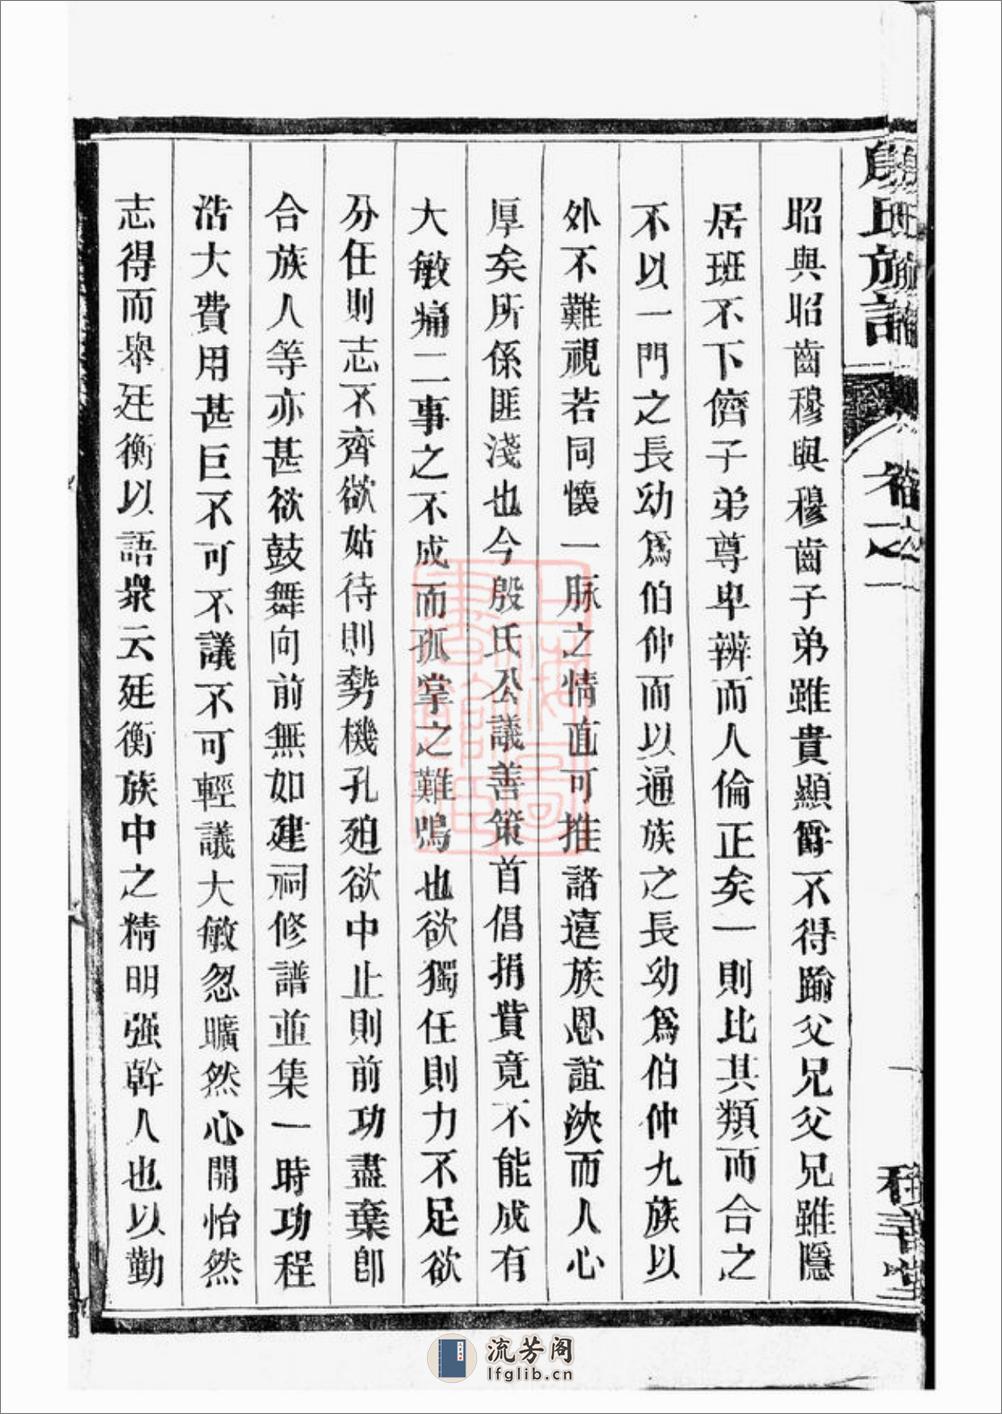 殷氏族譜
卷之一
昭與昭齒穆與穆齒子弟雖貴顯爵不得踰父兄父兄雖隱
居班不下儕子弟尊卑辨而人倫正矣一則比其類而合之
不以一門之長幼爲伯仲而以通族之長幼爲伯仲九族以
外不難視若同懷一脉之情直可推諸遠族恩誼浹而人心
厚矣所係匪淺也今殷氏公議善策首倡捐貲竟不能成有
大敏痛二事之不成而孤掌之難鳴也欲獨任則力不足欲
分任則志不齊欲姑待則勢機孔廹欲中止則前功盡棄卽
合族人等亦甚欲鼓舞向前無如建祠修譜並集一時功程
浩大費用甚巨不可不議不可輕議大敏忽曠然心開怡然
志得而舉廷衡以語衆云廷衡族中之精明强幹人也以勤
流芳阁
lfglib.cn